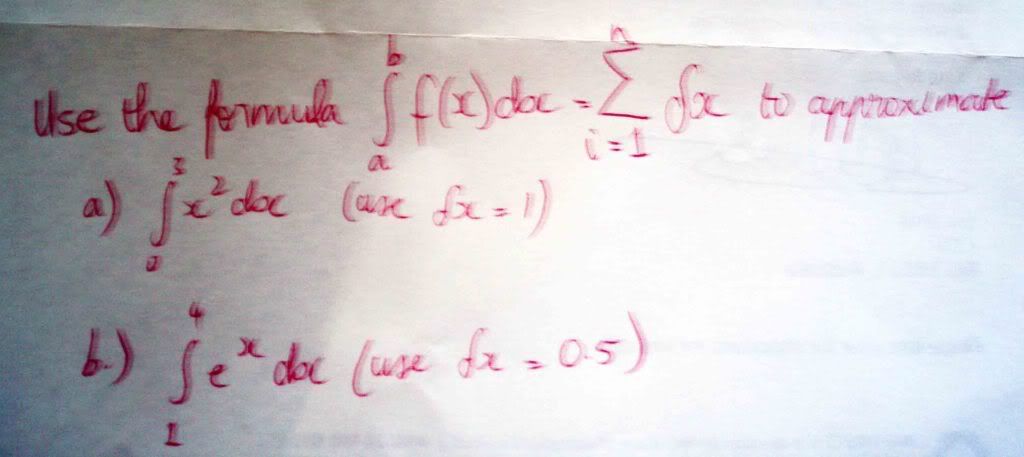 Use the formula ∫ₐᵇ f(x)dx = ∑ᵢ₌₁ⁿ δx to approximate
a) ∫₀³ x² dx (use δx = 1)
b.) ∫₁⁴ eˣ dx (use δx = 0.5)